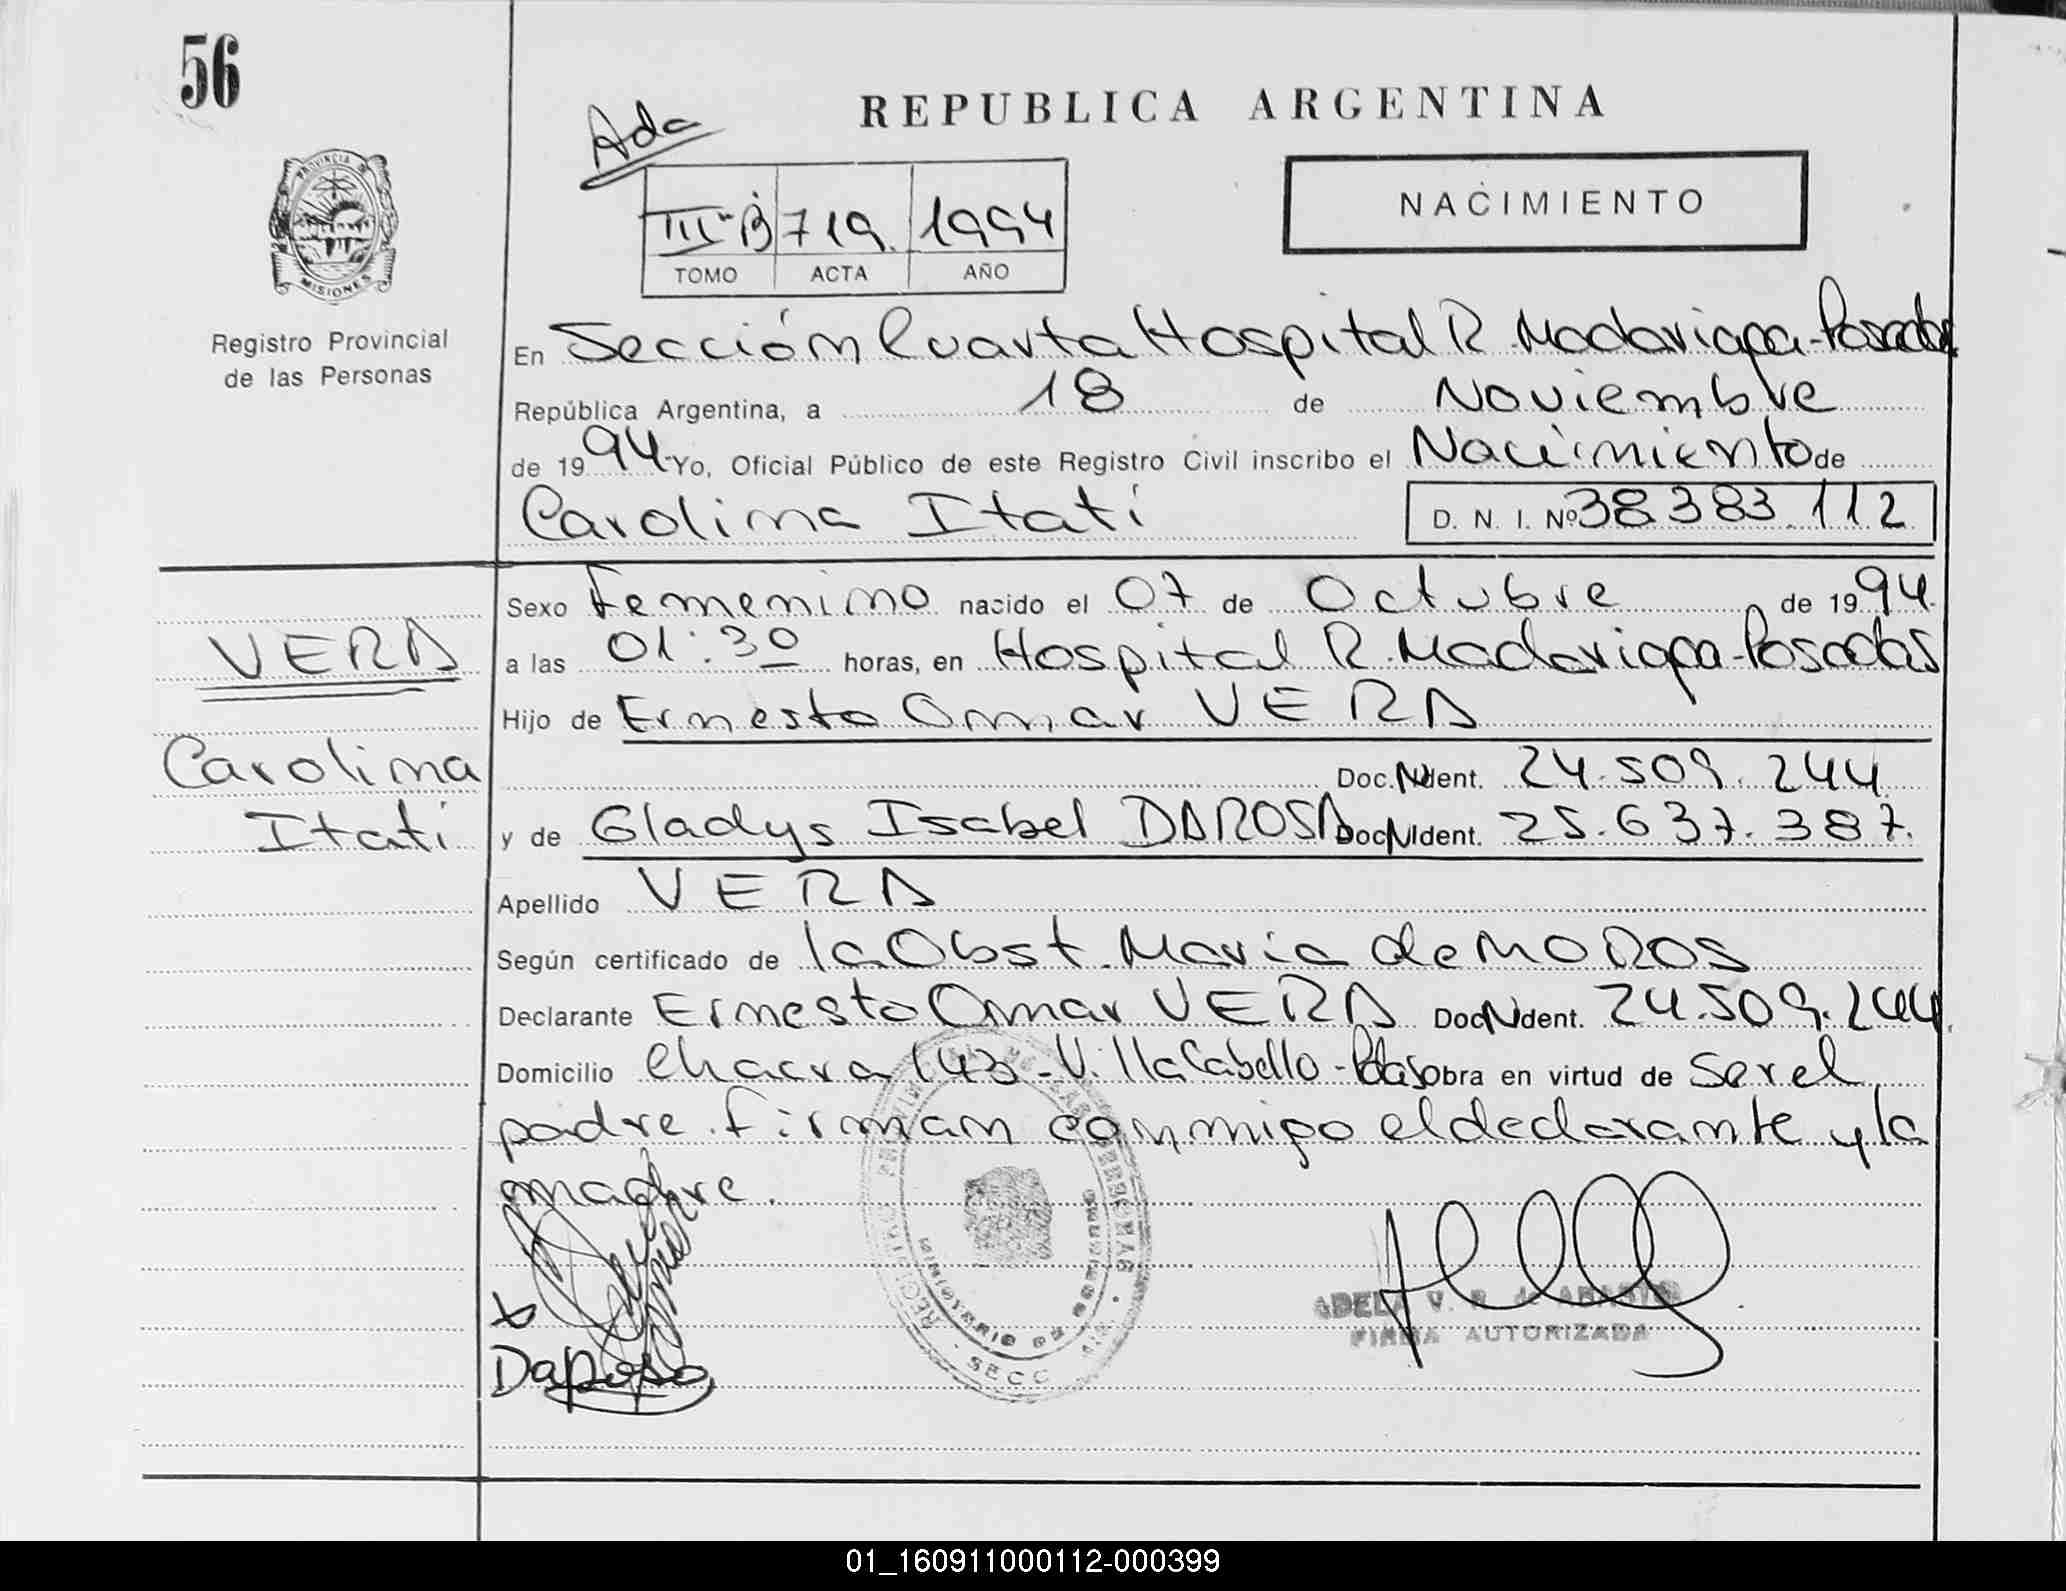 56
REPUBLICA ARGENTINA
Ada
III-B 719. 1994
TOMO ACTA AÑO
NACIMIENTO
PROVINCIA DE
MISIONES
Registro Provincial
de las Personas
En Sección Cuarta Hospital R. Madariaga-Posadas
República Argentina, a 18 de Noviembre
de 1994 Yo, Oficial Público de este Registro Civil inscribo el Nacimiento de
Carolina Itatí D. N. I. Nº 38.383.112
Sexo Femenino nacido el 07 de Octubre de 1994.
VERA
a las 01:30 horas, en Hospital R. Madariaga-Posadas
Hijo de Ernesto Omar VERA
Carolina
Doc. N Ident. 24.509.244.
Itatí
y de Gladys Isabel DAROSA Doc N Ident. 25.637.387.
Apellido VERA
Según certificado de la Obst. María de MOROS
Declarante Ernesto Omar VERA Doc N Ident. 24.509.244.
Domicilio Chacra 143-Villa Cabello-Pdas obra en virtud de ser el
padre. Firman conmigo el declarante y la
madre.
Darosa
SECC
ADELA V. R. de
FIRMA AUTORIZADA
01_160911000112-000399